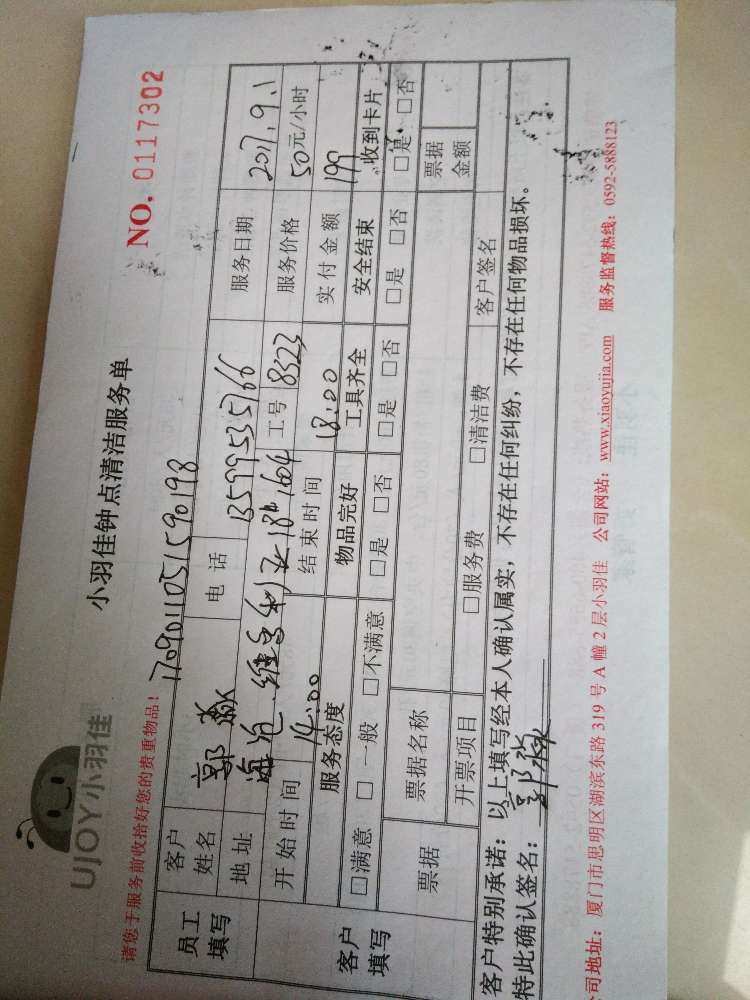 UJOY小羽佳
小羽佳钟点清洁服务单
NO. 0117302
请您于服务前收拾好您的贵重物品！ 1709011051590198
员工填写 客户姓名 郭淼 电话 13599535766 服务日期 2017.9.1
地址 海沧 18# 1604 工号 8323 服务价格 50元/小时
开始时间 14:00 结束时间 18:00 实付金额 199
客户填写 服务态度 物品完好 工具齐全 安全结束 收到卡片
□满意 □一般 □不满意 □是 □否 □是 □否 □是 □否 □是 □否
票据 票据名称 票据金额
开票项目 □服务费 □清洁费 客户签名
客户特别承诺：以上填写经本人确认属实，不存在任何纠纷，不存在任何物品损坏。
特此确认签名：郭淼
司地址：厦门市思明区湖滨东路 319 号 A 幢 2 层小羽佳 公司网站：www.xiaoyujia.com 服务监督热线：0592-5888123